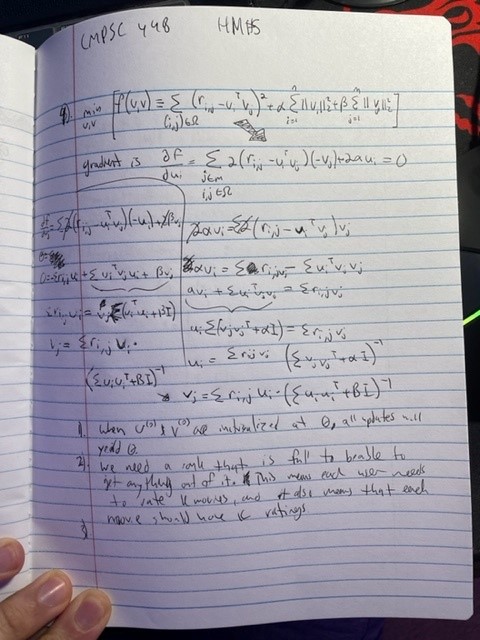 CMPSC 448 HW#5
min u,v [f(u,v) ≡ Σ (i,j)∈Ω (r_{i,j} - u_i^T v_j)^2 + α Σ_{i=1}^{n} ||u_i||_2^2 + β Σ_{j=1}^{m} ||v_j||_2^2]
gradient is ∂F/∂u_i = Σ j∈m i,j∈Ω 2(r_{i,j} - u_i^T v_j)(-v_j) + 2αu_i = 0
= Σ2(r_{i,j} - u_i^T v_j)(-u_i) + 2βv_j
+ Σ u_i^T v_j u_i + βv_j
v_j = Σ r_{i,j} u_i ·
(Σ u_i u_i^T + βI)^{-1}
2αu_i = Σ2(r_{i,j} - u_i^T v_j)v_j
αu_i = Σ r_{i,j} v_j - Σ u_i^T v_j v_j
αu_i + Σ u_i^T v_j v_j = Σ r_{i,j} v_j
u_i Σ(v_j v_j^T + αI) = Σ r_{i,j} v_j
u_i = Σ r_{i,j} v_j (Σ v_j v_j^T + αI)^{-1}
v_j = Σ r_{i,j} u_i · (Σ u_i u_i^T + βI)^{-1}
1) when U^(0) & V^(0) are initialized at 0, all updates will
yield 0.
2) we need a rank that is full to be able to
get anything out of it. This means each user needs
to rate K movies, and it also means that each
movie should have K ratings
3)